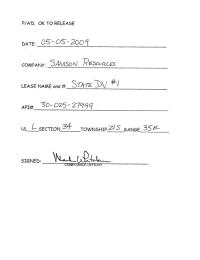 P/A'D. OK TO RELEASE
DATE: 05-05-2009
COMPANY: SAMSON RESOURCES
LEASE NAME and #: STATE DV #1
API# 30-025-27999
UL L SECTION 34 TOWNSHIP 21S RANGE 35E
SIGNED:
COMPLIANCE OFFICER